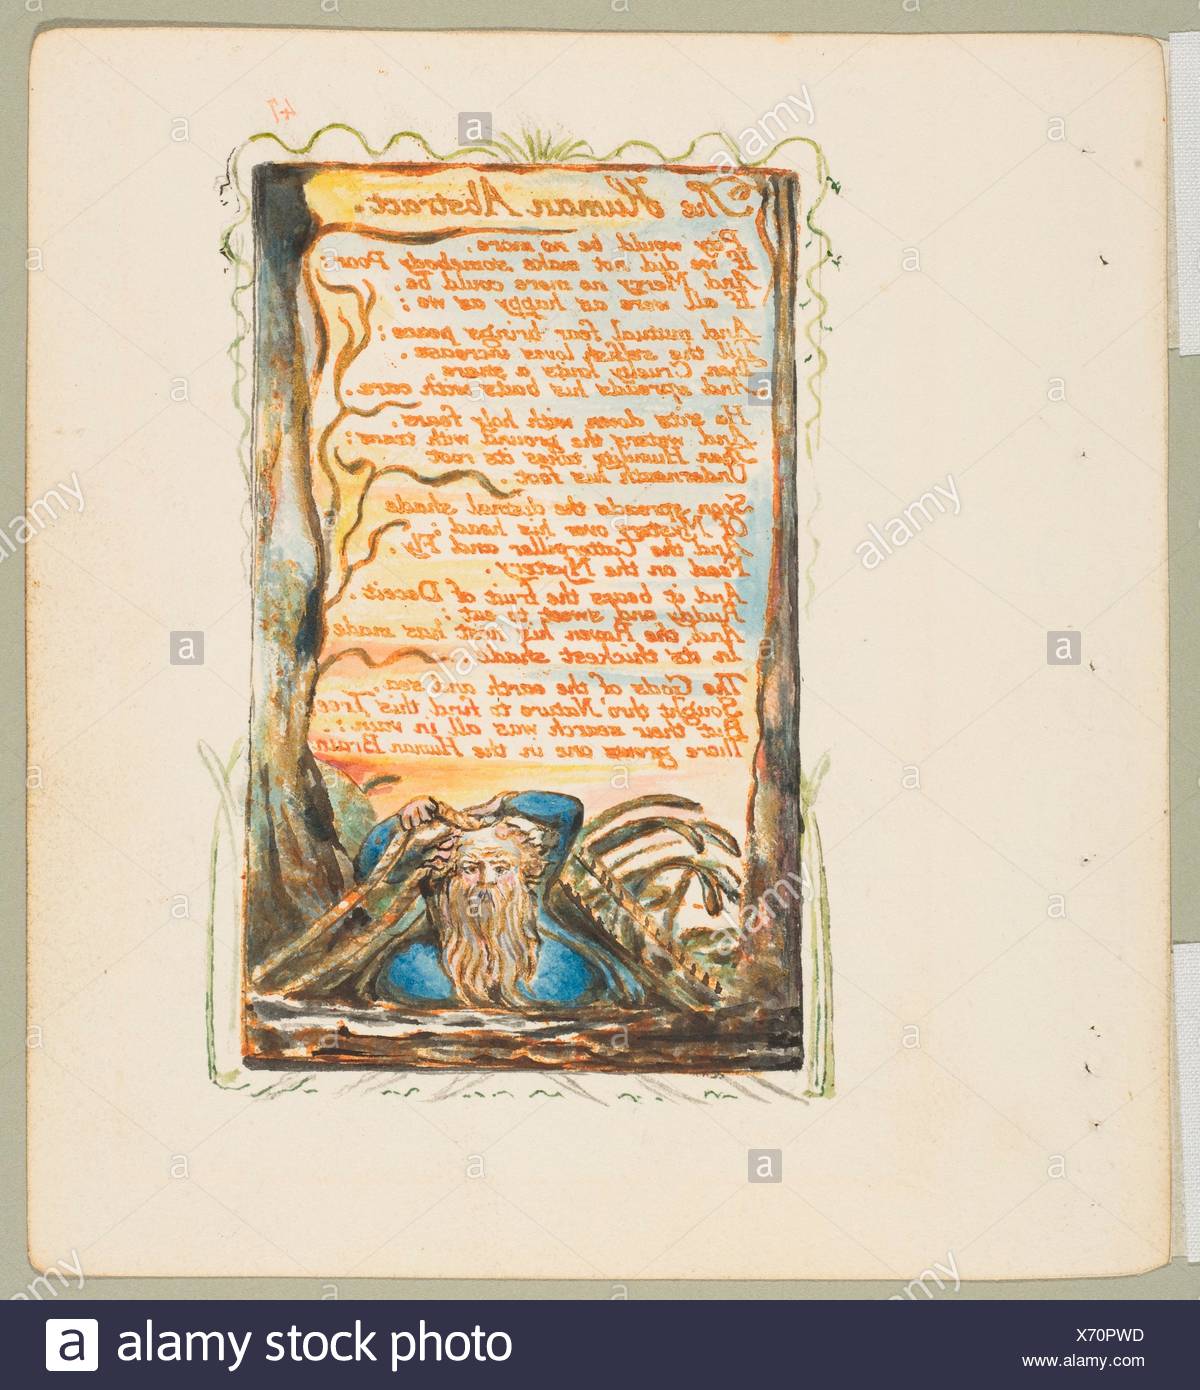 47
The Human Abstract.
Pity would be no more,
If we did not make somebody Poor:
And Mercy no more could be,
If all were as happy as we;
And mutual fear brings peace;
Till the selfish loves increase.
Then Cruelty knits a snare,
And spreads his baits with care.
He sits down with holy fears,
And waters the ground with tears:
Then Humility takes its root
Underneath his foot.
Soon spreads the dismal shade
Of Mystery over his head;
And the Catterpiller and Fly,
Feed on the Mystery.
And it bears the fruit of Deceit,
Ruddy and sweet to eat;
And the Raven his nest has made
In its thickest shade.
The Gods of the earth and sea,
Sought thro' Nature to find this Tree
But their search was all in vain:
There grows one in the Human Brain
a alamy stock photo
X70PWD
www.alamy.com